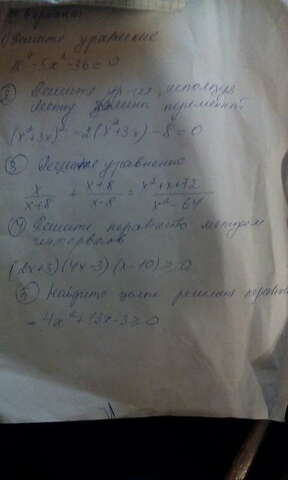 вариант
1) Решите уравнение
x⁴-5x²-36=0
② Решите ур-ия, используя
замену переменной
(x²+3x)²-2(x²+3x)-8=0
③ Решите уравнение
x/(x+8) + (x+8)/(x-8) = (x²+x+72)/(x²-64)
④ Решите неравенство методом
интервалов
(2x+3)(4x-3)(x-10)≥0
⑤ Найдите целые решения
-4x²+13x-3≥0